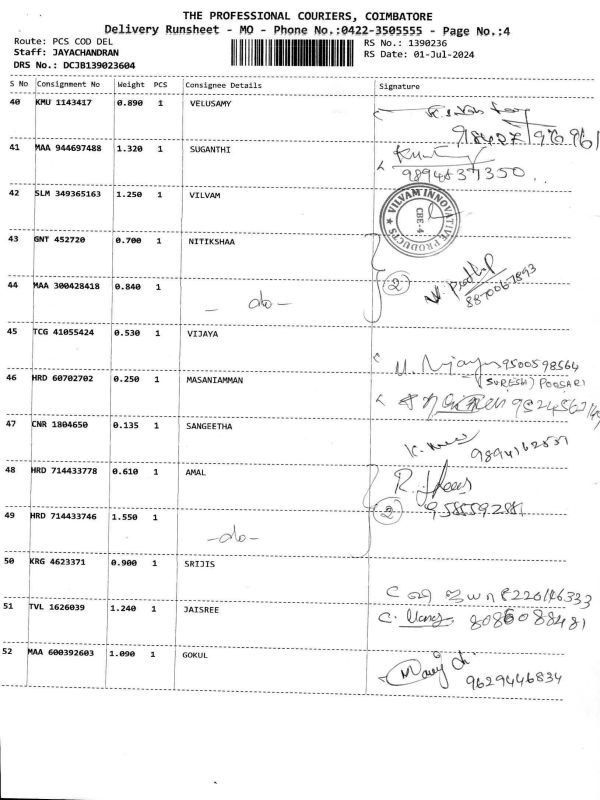 THE PROFESSIONAL COURIERS, COIMBATORE
Delivery Runsheet - MO - Phone No.:0422-3505555 - Page No.:4
Route: PCS COD DEL RS No.: 1390236
Staff: JAYACHANDRAN RS Date: 01-Jul-2024
DRS No.: DCJB139023604
S No Consignment No Weight PCS Consignee Details Signature
40 KMU 1143417 0.890 1 VELUSAMY
41 MAA 944697488 1.320 1 SUGANTHI
9894837350
42 SLM 349365163 1.250 1 VILVAM
VILVAM INNOVATIVE PRODUCTS
CBE-4
43 GNT 452720 0.700 1 NITIKSHAA
2
8870067893
44 MAA 300428418 0.840 1
- do -
45 TCG 41055424 0.530 1 VIJAYA
9500598564
(SURESH) POOSARI
46 HRD 60702702 0.250 1 MASANIAMMAN
47 CNR 1804650 0.135 1 SANGEETHA
48 HRD 714433778 0.610 1 AMAL
2
9585592881
49 HRD 714433746 1.550 1
-do-
50 KRG 4623371 0.900 1 SRIJIS
8220146333
51 TVL 1626039 1.240 1 JAISREE
52 MAA 600392603 1.090 1 GOKUL
9629446834